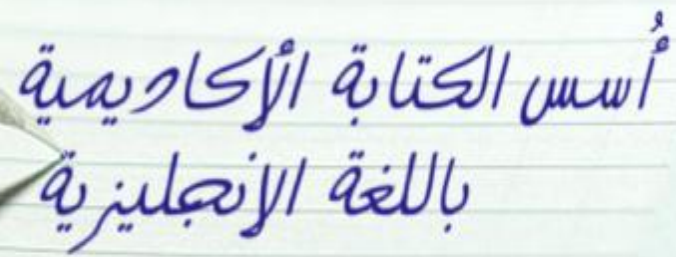 أُسس الكتابة الأكاديمية
باللغة الانجليزية